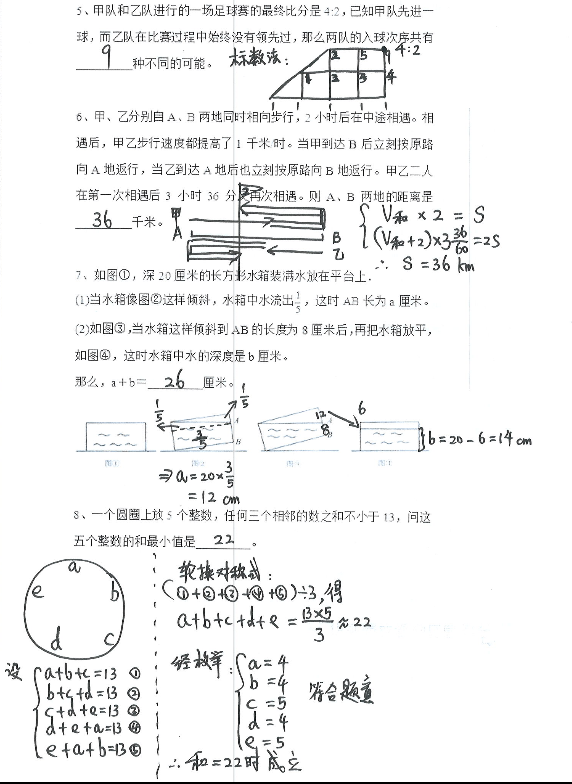 5、甲队和乙队进行的一场足球赛的最终比分是4:2，已知甲队先进一
球，而乙队在比赛过程中始终没有领先过，那么两队的入球次序共有
9 种不同的可能。 标数法：
4:2
2 5 9
1 2 3 4
6、甲、乙分别自A、B两地同时相向步行，2小时后在中途相遇。相
遇后，甲乙步行速度都提高了1千米/时。当甲到达B后立刻按原路
向A地返行，当乙到达A地后也立刻按原路向B地返行。甲乙二人
在第一次相遇后3小时36分又再次相遇。则A、B两地的距离是
36 千米。 甲 A B 乙
V和 × 2 = S
(V和+2)×3 36/60 = 2S
∴ S = 36 km
7、如图①，深20厘米的长方形水箱装满水放在平台上.
(1)当水箱像图②这样倾斜，水箱中水流出1/5，这时AB长为a厘米。
(2)如图③,当水箱这样倾斜到AB的长度为8厘米后,再把水箱放平，
如图④，这时水箱中水的深度是b厘米。
那么，a+b= 26 厘米。
1/5 1/5 3/5 A B
12 8 A B 6
b=20-6=14cm
图① 图② 图③ 图④
⇒ a=20×3/5
=12 cm
8、一个圆圈上放5个整数，任何三个相邻的数之和不小于13，问这
五个整数的和最小值是 22 。
a
e b
d c
设 a+b+c=13 ①
b+c+d=13 ②
c+d+e=13 ③
d+e+a=13 ④
e+a+b=13 ⑤
轮换对称式：
(①+②+③+④+⑤)÷3,得
a+b+c+d+e = 13×5/3 ≈22
经枚举： a=4
b=4
c=5
d=4
e=5
符合题意
∴ 和=22时成立